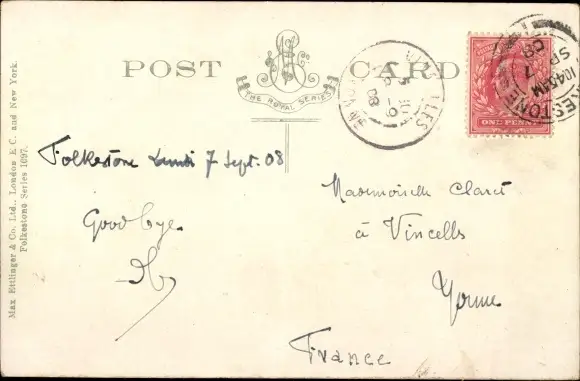 POST CARD
THE ROYAL SERIES
Max Ettlinger & Co. Ltd., London E.C. and New York.
Folkestone Series 1097.
ONE PENNY
FOLKESTONE
10 45 AM
SP 7
08
YONNE
Folkestone Lundi 7 Sept. 08
Good bye.
Mademoiselle Claret
à Vincells
Yonne
France